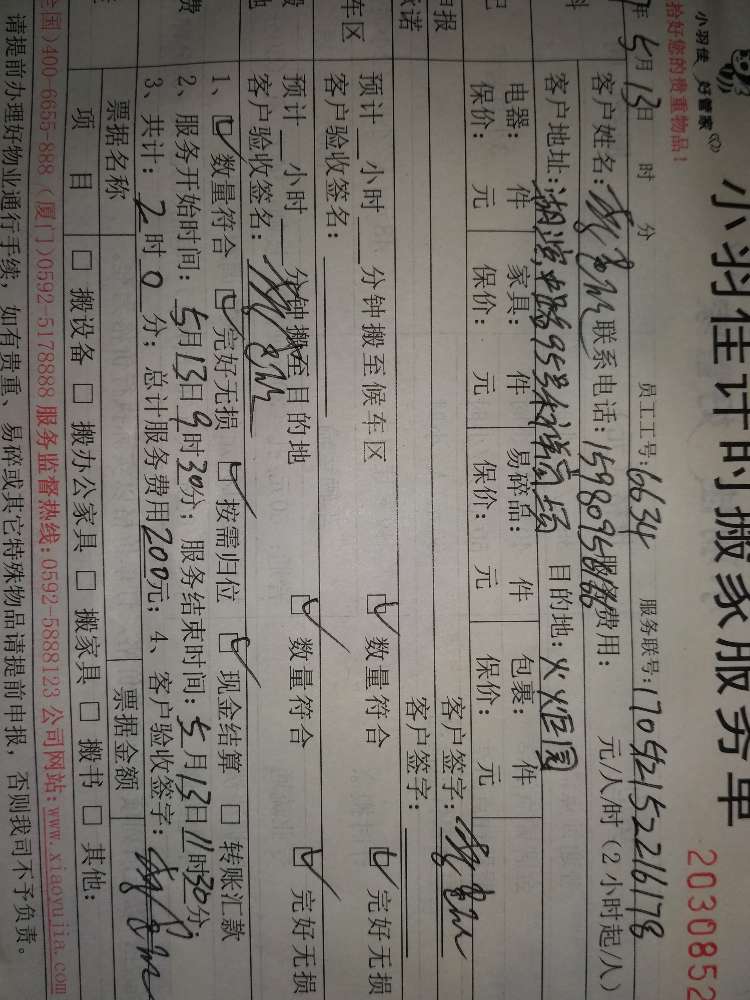 小羽佳 好管家
小羽佳计时搬家服务单
拾好您的贵重物品！
2030852
年5月13日 时 分 员工工号:6634 服务联号:17042152216178
客户姓名: 联系电话:159 服务费用: 元/人/时(2小时起/人)
客户地址:湖滨中路95号 目的地:火炬园
电器: 件 家具: 件 易碎品: 件 包裹: 件
保价: 元 保价: 元 保价: 元 保价: 元
客户签字:
客户签字:
预计__小时__分钟搬至候车区 数量符合 完好无损
客户验收签名:
预计__小时__分钟搬至目的地 数量符合 完好无损
客户验收签名:
1、 数量符合 完好无损 按需归位 现金结算 转账汇款
2、服务开始时间: 5月13日9时30分; 服务结束时间: 5月13日11时30分;
3、共计: 2时0分; 总计服务费用200元; 4、客户验收签字:
票据名称 票据金额
项 目 搬设备 搬办公家具 搬家具 搬书 其他:
全国)400-6655-888 (厦门)0592-5178888 服务监督热线:0592-5888123 公司网站:www.xiaoyujia.com
请提前办理好物业通行手续，如有贵重、易碎或其它特殊物品请提前申报，否则我司不予负责。